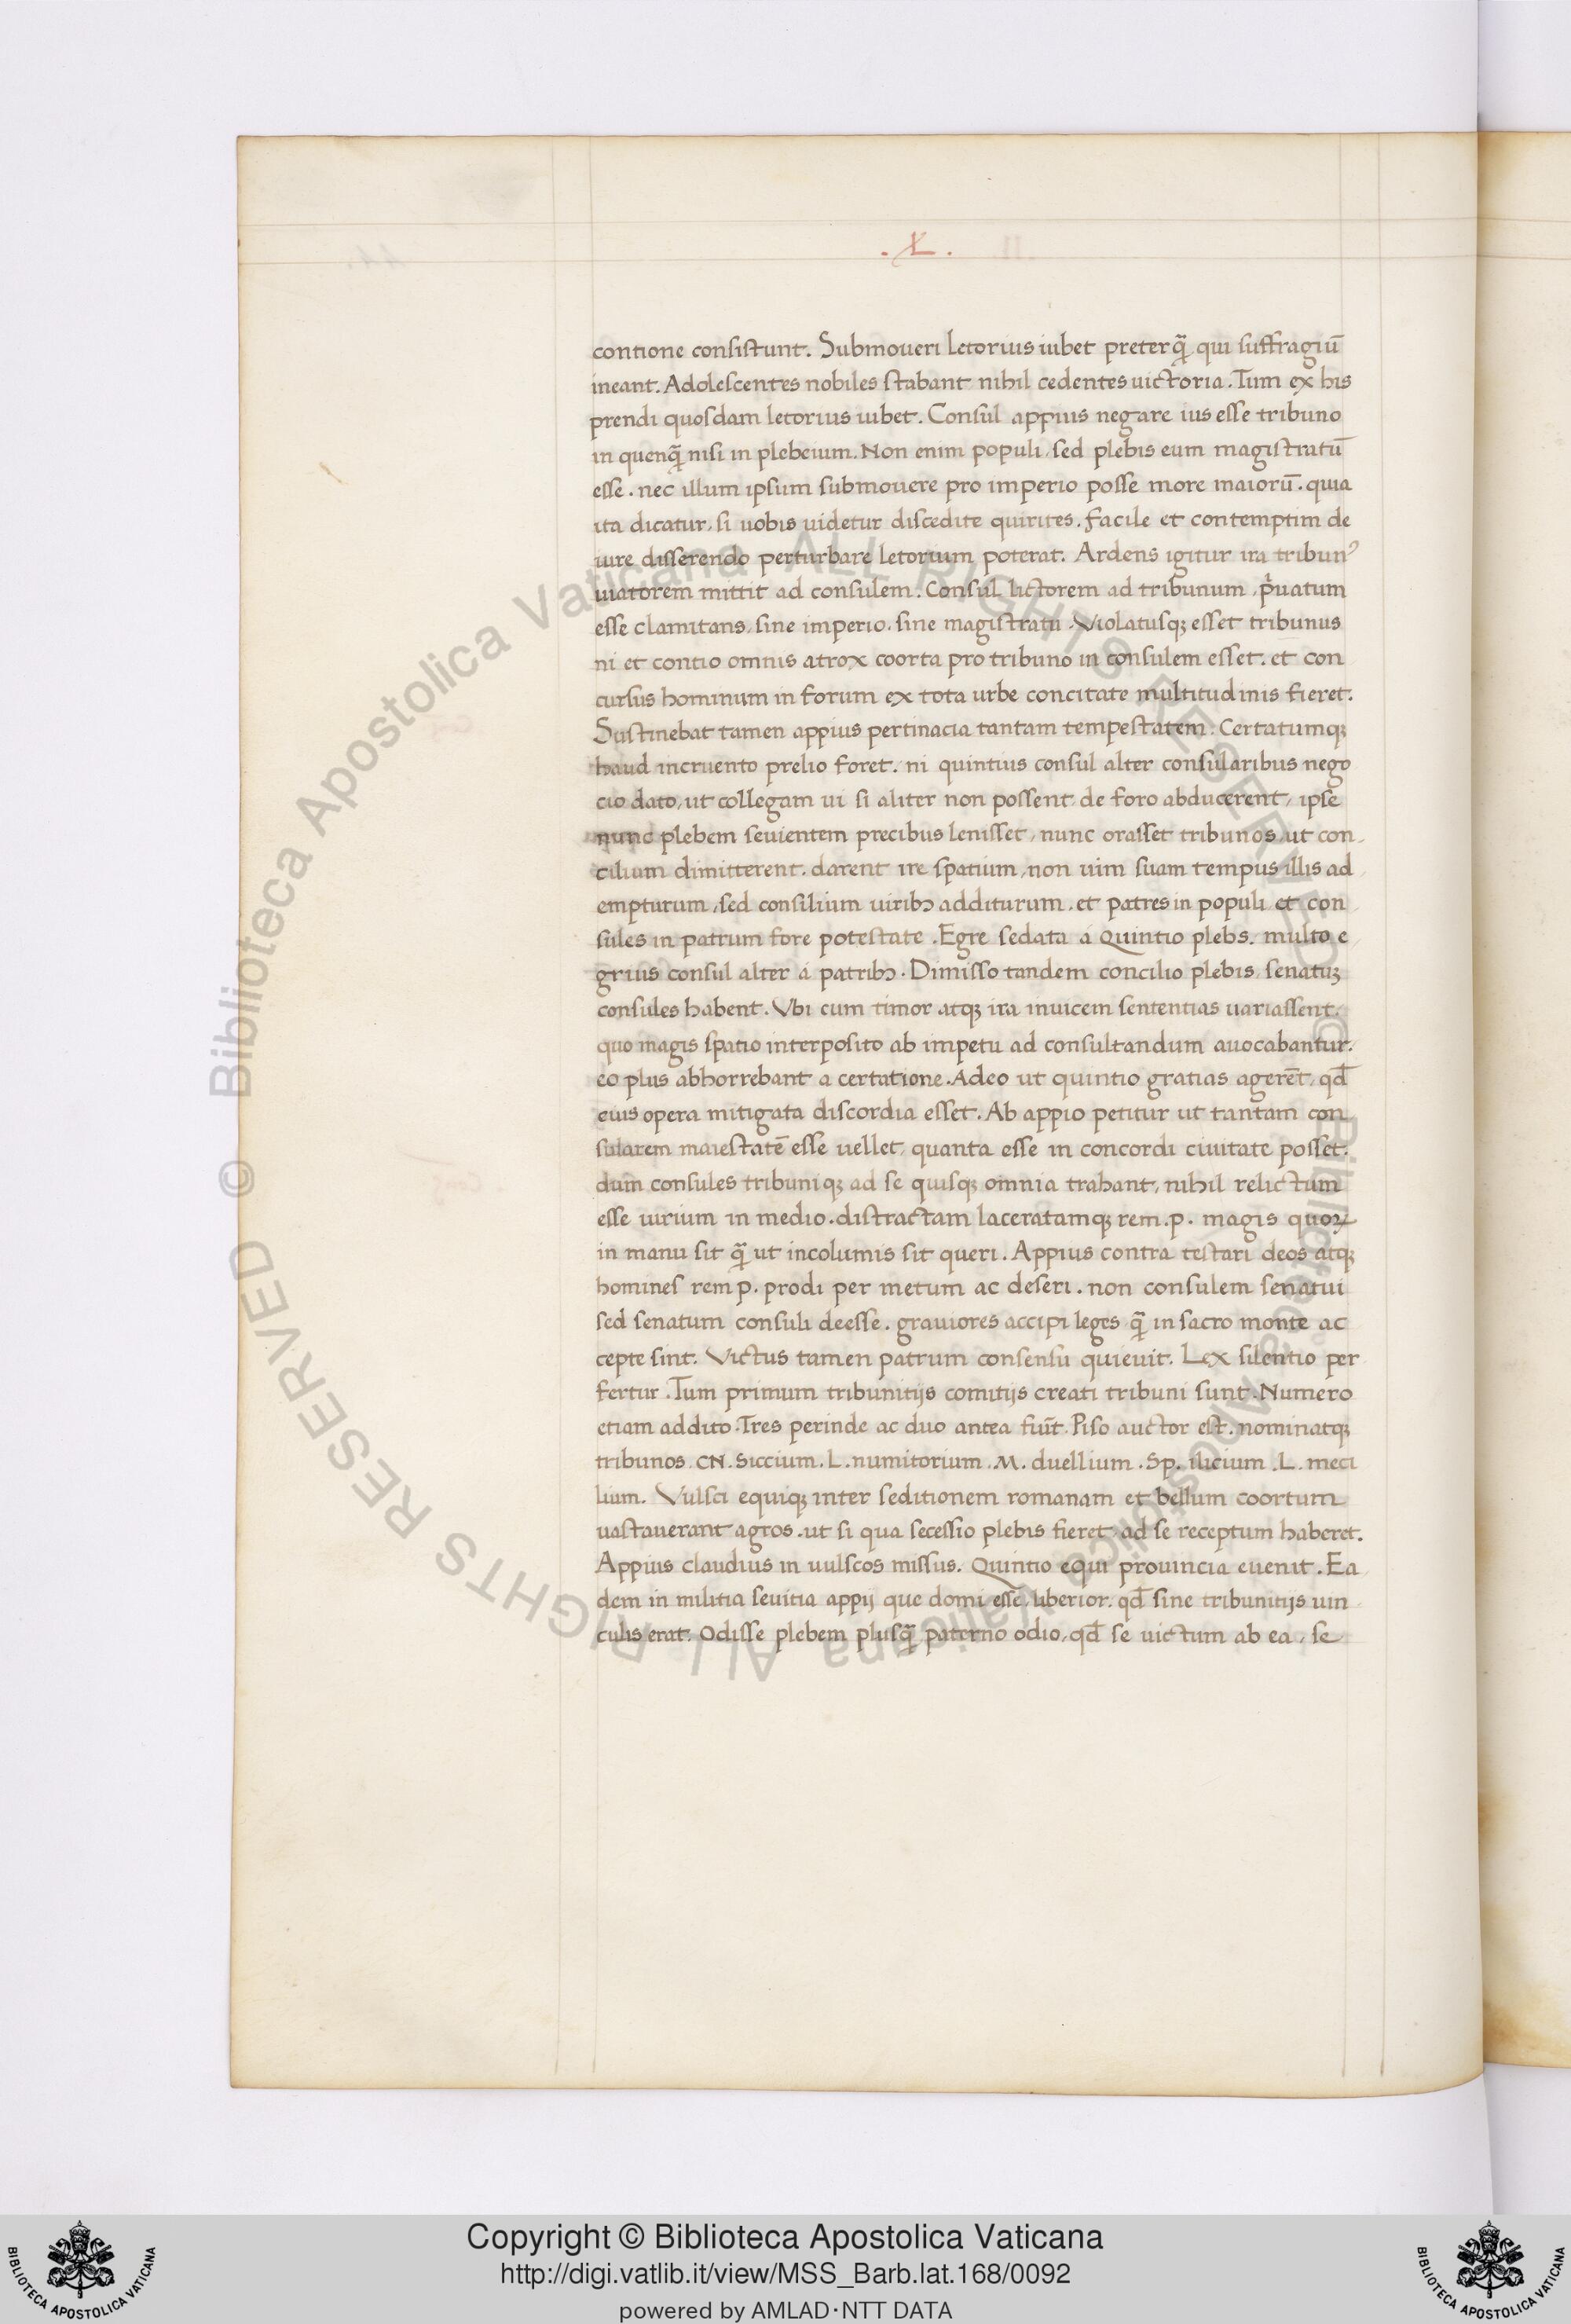 .X.
contione consistunt. Submoueri letorius iubet preterq̃ qui suffragiū
ineant. Adolescentes nobiles stabant nihil cedentes uictoria. Tum ex his
prendi quosdam letorius iubet. Consul appius negare ius esse tribuno
in quenq̃ nisi in plebeium. Non enim populi, sed plebis eum magistratū
esse. nec illum ipsum submouere pro imperio posse more maiorū. quia
ita dicatur, si uobis uidetur discedite quirites. facile et contemptim de
iure disserendo perturbare letorium poterat. Ardens igitur ira tribunꝰ
uiatorem mittit ad consulem. Consul lictorem ad tribunum, p̓uatum
esse clamitans, sine imperio. sine magistratu. Violatusqꝫ esset tribunus
ni et contio omnis atrox coorta pro tribuno in consulem esset. et con
cursus hominum in forum ex tota urbe concitate multitudinis fieret.
Sustinebat tamen appius pertinacia tantam tempestatem. Certatumqꝫ
haud incruento prelio foret. ni quintius consul alter consularibus nego
cio dato, ut collegam ui si aliter non possent de foro abducerent, ipse
nunc plebem seuientem precibus lenisset, nunc orasset tribunos ut con
cilium dimitterent. darent ire spatium, non uim suam tempus illis ad
empturum, sed consilium uiribꝫ additurum. et patres in populi et con
sules in patrum fore potestate. Egre sedata a Quintio plebs. multo e
grius consul alter a patribꝫ. Dimisso tandem concilio plebis, senatuꝫ
consules habent. Vbi cum timor atqꝫ ira inuicem sententias uariassent.
quo magis spatio interposito ab impetu ad consultandum auocabantur.
eo plus abhorrebant a certatione. Adeo ut quintio gratias agerēt, qd̄
eius opera mitigata discordia esset. Ab appio petitur ut tantam con
sularem maiestatē esse uellet, quanta esse in concordi ciuitate posset.
dum consules tribuniqꝫ ad se quisqꝫ omnia trahant, nihil relictum
esse uirium in medio. distractam laceratamqꝫ rem.p. magis quoꝝ
in manu sit q̃ ut incolumis sit queri. Appius contra testari deos atqꝫ
homines rem p. prodi per metum ac deseri. non consulem senatui
sed senatum consuli deesse. grauiores accipi leges q̃ in sacro monte ac
cepte sint. Victus tamen patrum consensu quieuit. Lex silentio per
fertur. Tum primum tribunitijs comitijs creati tribuni sunt. Numero
etiam addito. Tres perinde ac duo antea fuīt. Piso auctor est. nominatqꝫ
tribunos. CN. Siccium. L. numitorium. M. duellium. Sp. ilicium. L. meci
lium. Vulsci equiqꝫ inter seditionem romanam et bellum coortum
uastauerant agros. ut si qua secessio plebis fieret ad se receptum haberet.
Appius claudius in uulscos missus. Quintio equi prouincia euenit. Ea
dem in militia seuitia appij que domi esse. liberior. qd̄ sine tribunitijs uin
culis erat. Odisse plebem plusq̃ paterno odio, qd̄ se uictum ab ea, se
© Biblioteca Apostolica Vaticana ALL RIGHTS RESERVED
© Biblioteca Apostolica Vaticana ALL RIGHTS RESERVED
BIBLIOTECA APOSTOLICA VATICANA
Copyright © Biblioteca Apostolica Vaticana
http://digi.vatlib.it/view/MSS_Barb.lat.168/0092
powered by AMLAD·NTT DATA
BIBLIOTECA APOSTOLICA VATICANA